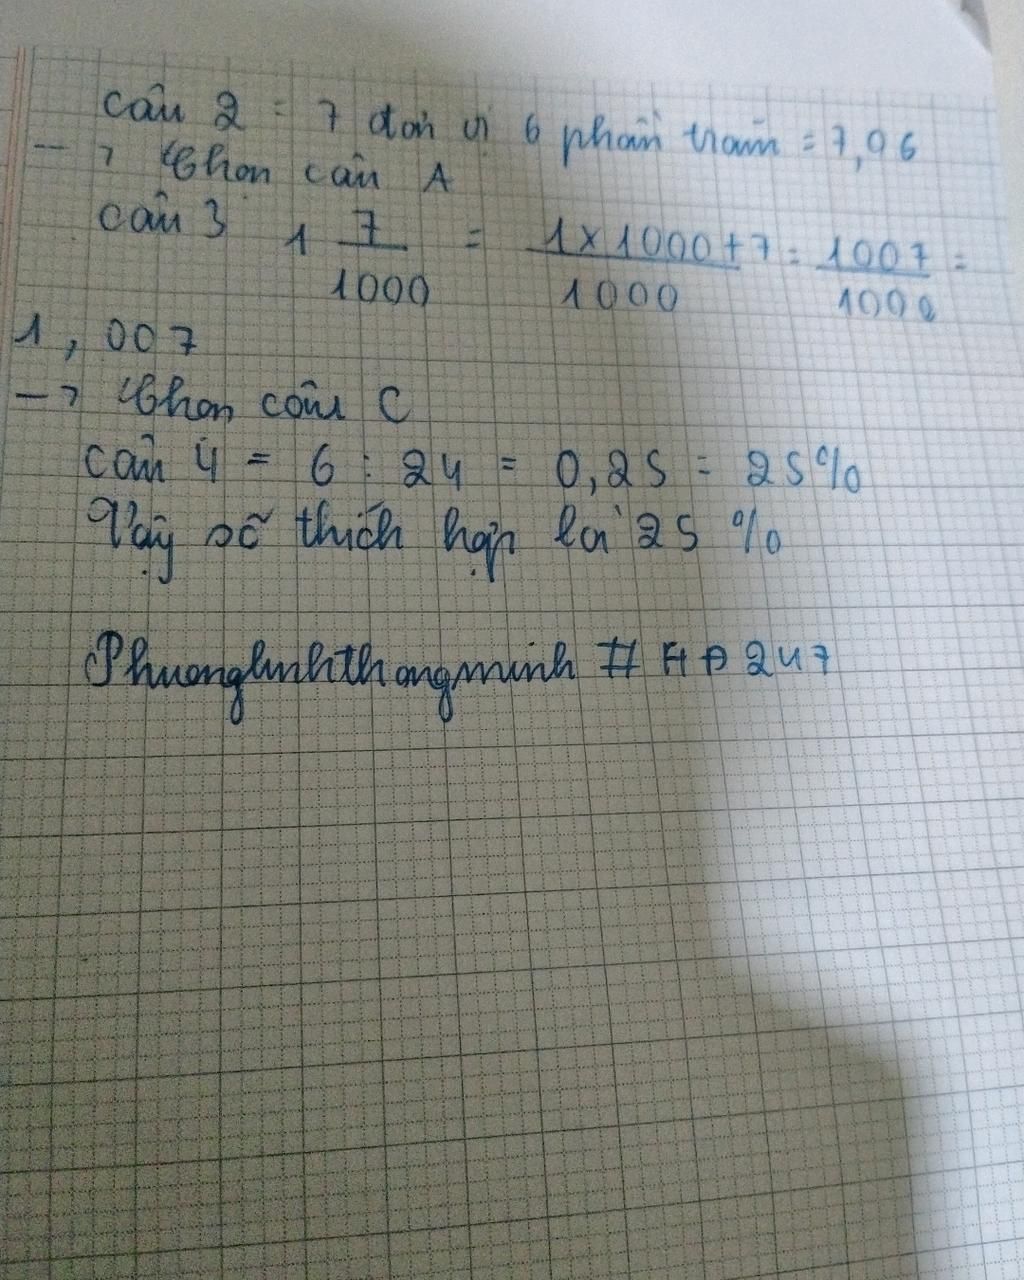 Câu 2 = 7 đơn vị 6 phần trăm = 7,06
-> Chọn câu A
Câu 3 1 7/1000 = 1x1000+7/1000 = 1007/1000 =
1,007
-> Chọn câu C
Câu 4 = 6 : 24 = 0,25 = 25%
Vậy số thích hợp là 25 %
Phuonglinhthongminh # HD247